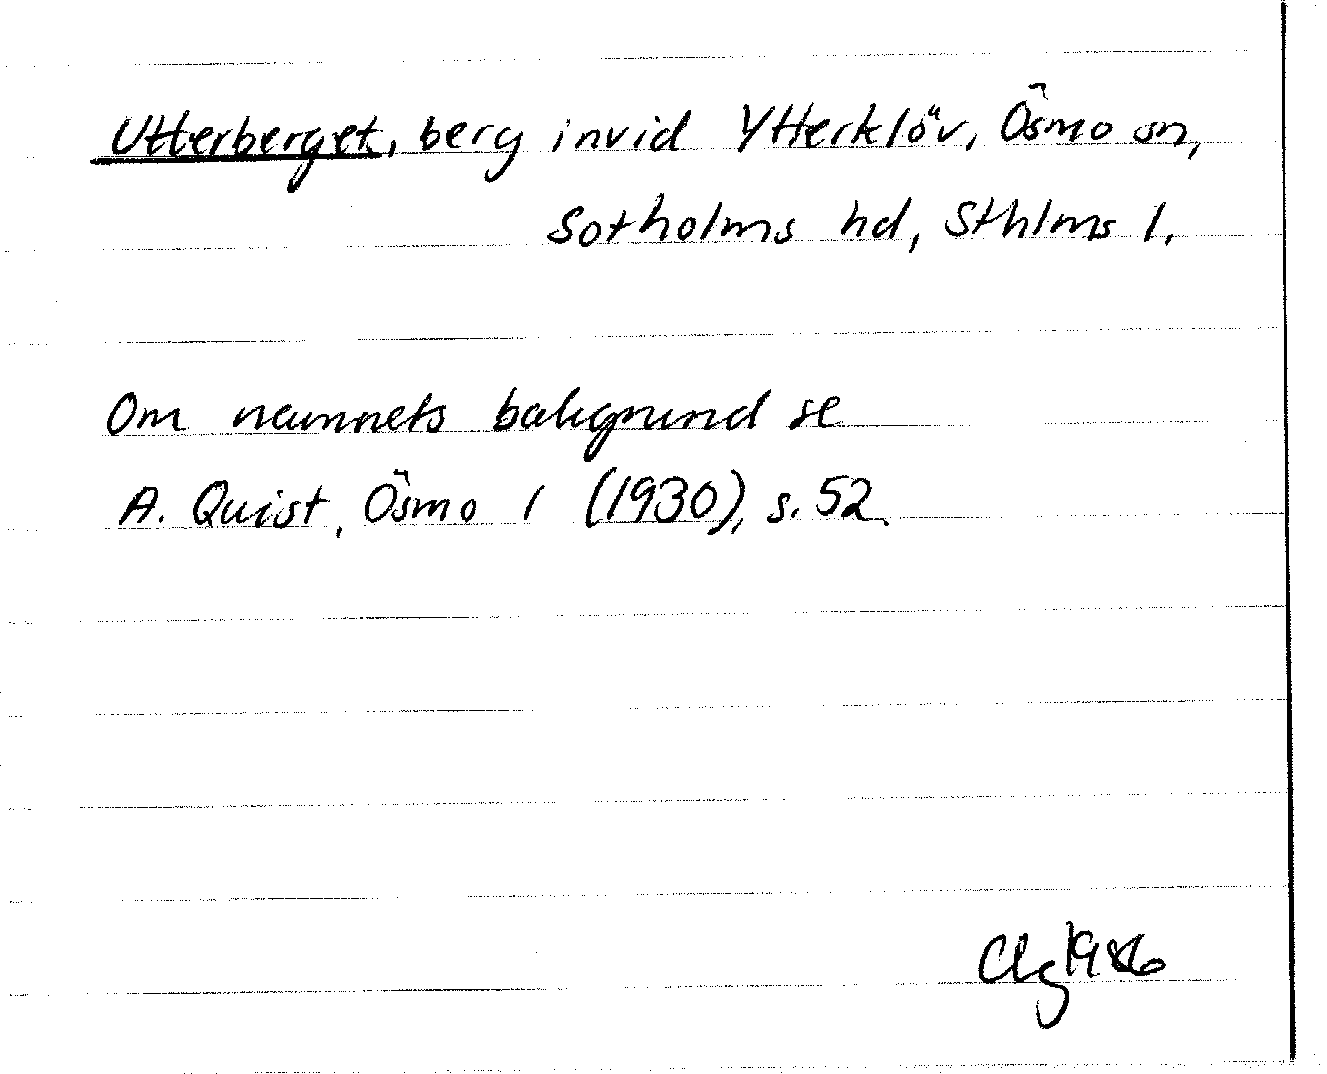 Utterberget, berg invid Ytterklöv, Ösmo sn,
Sotholms hd, Sthlms l.
Om namnets bakgrund se
A. Quist, Ösmo 1 (1930), s. 52.
1986